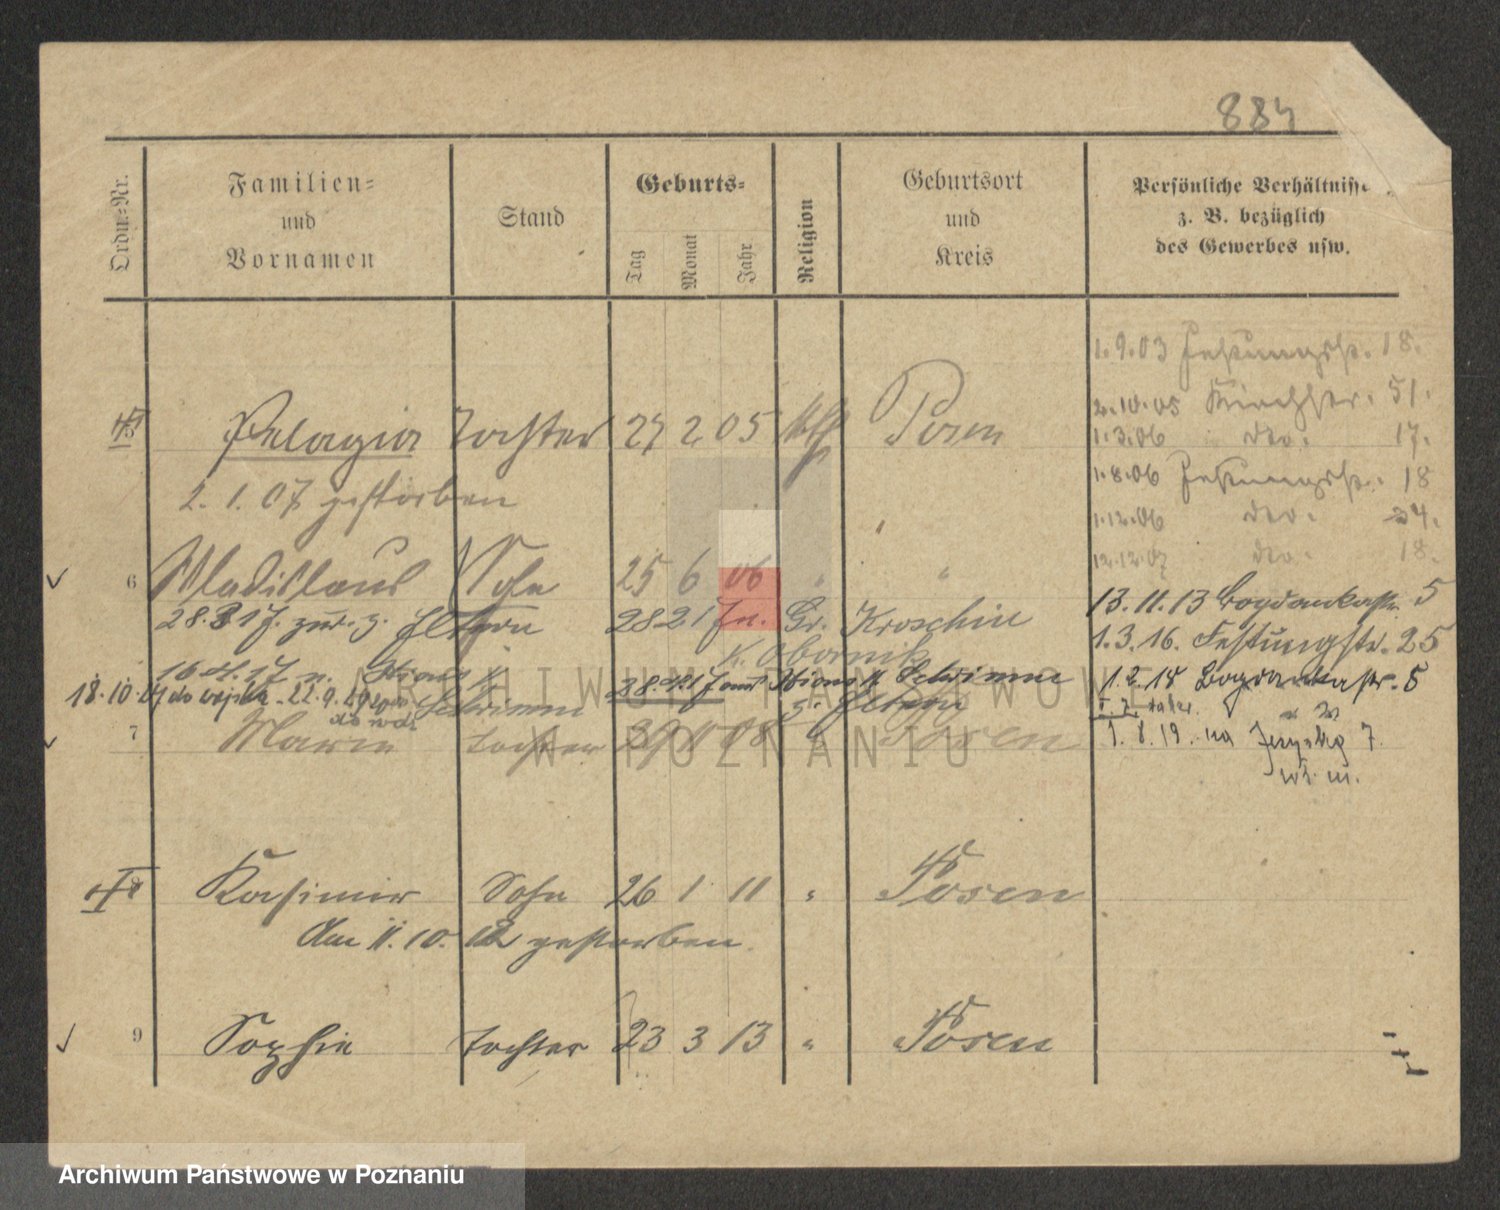 884
Ordn.-Nr.
Familien-
und
Vornamen
Stand
Geburts-
Tag
Monat
Jahr
Religion
Geburtsort
und
Kreis
Persönliche Verhältnisse
z. B. bezüglich
des Gewerbes usw.
1.9.03 Festungsstr. 18.
2.10.05 Kirchstr. 51.
1.3.06 do. 17.
1.8.06 Festungsstr. 18
1.12.06 do. 34.
12.12.07 do. 18.
13.11.13 Bogdankastr. 5
1.3.16. Festungstr. 25
1.2.18 Bogdankastr. 5
1.8.19. na 7.
m.
5 Pelagia Tochter 27 2 05 kath Posen
2.1.07 gestorben
6 Wladislaus Sohn 25 6 06 " "
28.3.17. zur. z. Eltern 28.2.17 n. Gr. Kroschin
K. Obornik
16.4.17 n. Xions K. Schrimm 28.4.17 aus Xions K. Schrimm
z. Eltern
18.10. do wojska - 22.9.
7 Marie Tochter 29 11 08 " Posen
8 Kasimir Sohn 26 1 11 " Posen
Am 11.10.12 gestorben.
9 Sophie Tochter 23 3 13 " Posen
ARCHIWUM PAŃSTWOWE
W POZNANIU
Archiwum Państwowe w Poznaniu